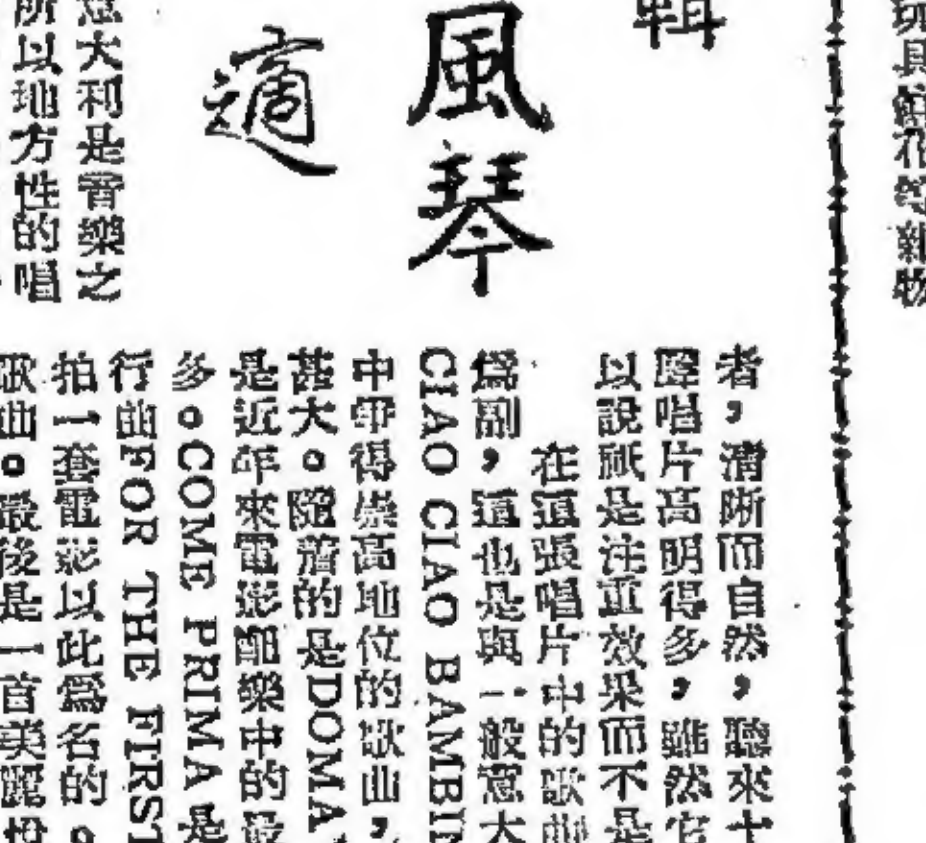 玩具鮮花等雜物
輯
風琴
適
意大利是音樂之
所以地方性的唱
者，清晰而自然，聽來十
聲唱片高明得多，雖然它
以說祇是注重效果而不是
在這張唱片中的歌曲
爲副，這也是與一般意大
CIAO CIAO BAMBIN
中帶得崇高地位的歌曲，
甚大。隨着的是DOMA
是近年來電影配樂中的最
多。COME PRIMA是
行的FOR THE FIRST
拍一套電影以此爲名的。
歌曲。最後是一首美麗